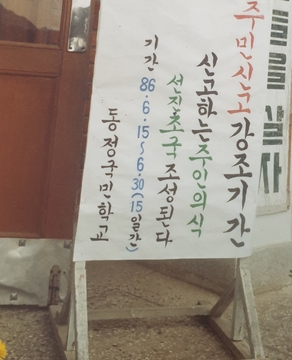 주민신고강조기간
신고하는주인의식
선진조국조성된다
기간 86.6.15~6.30(15일간)
동정국민학교
들을 살
자